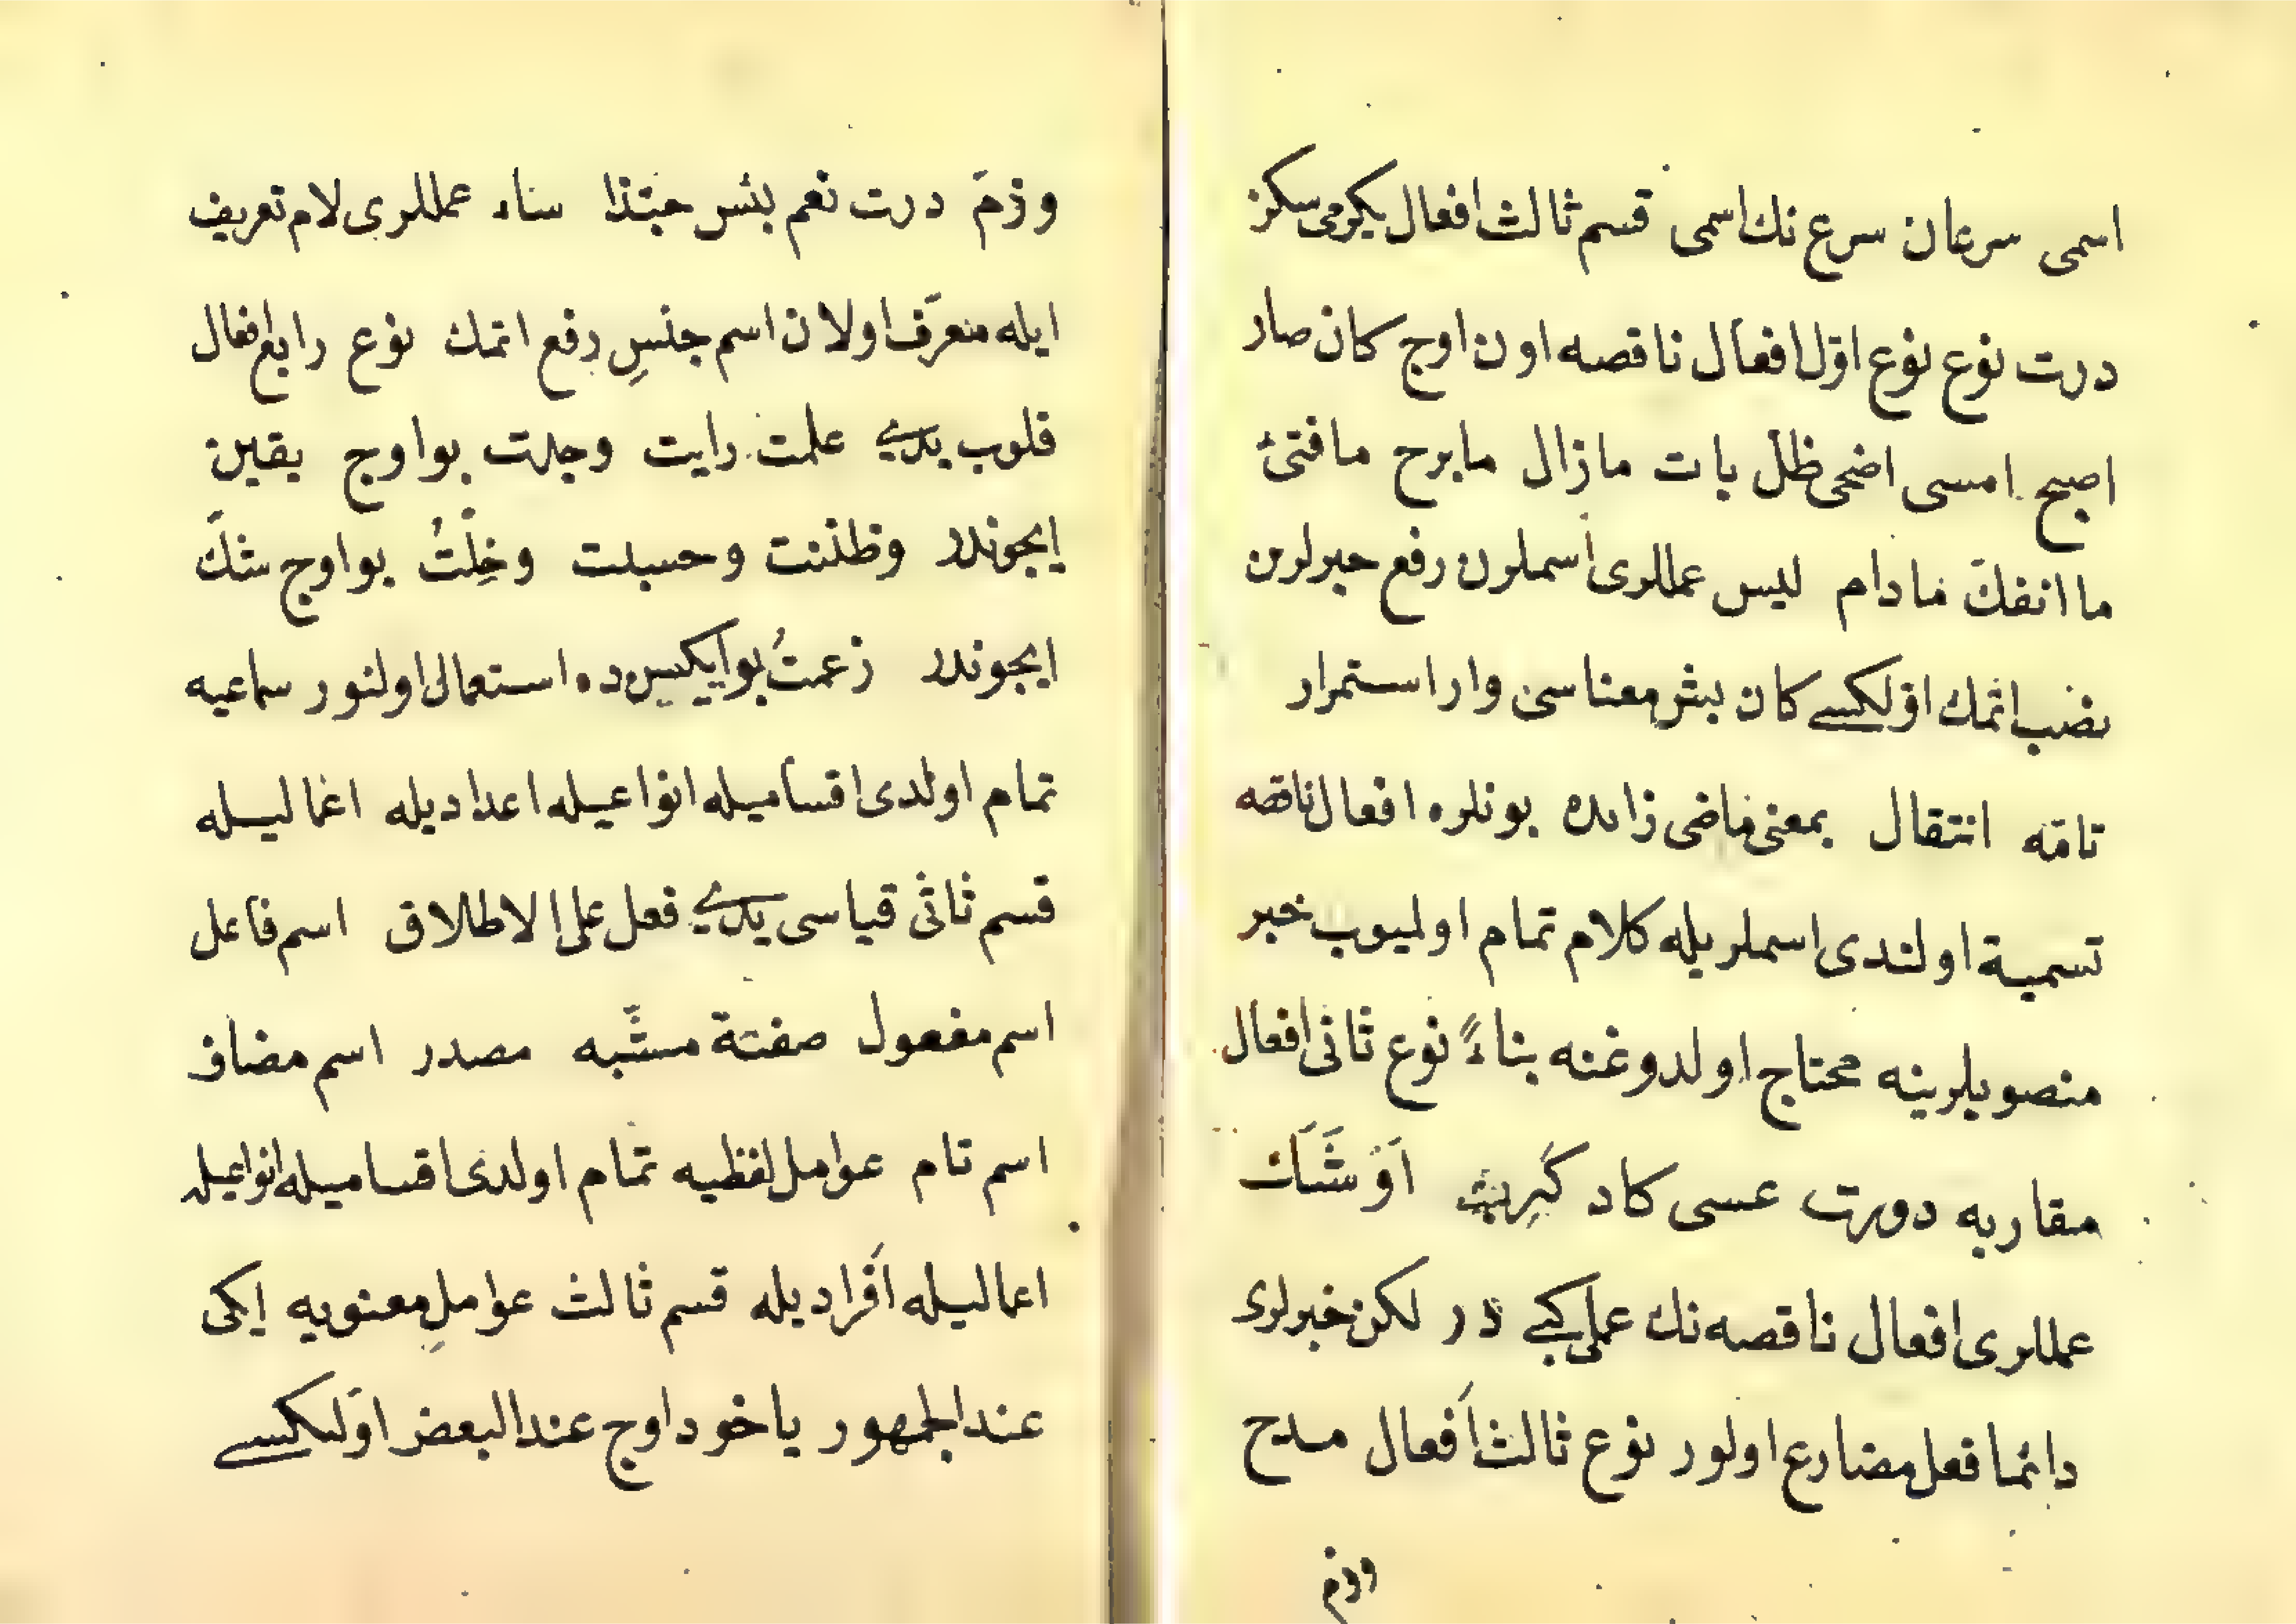 اسمى سرعان سرع نك اسمى قسم ثالث افعال يكرمى سكز
درت نوع نوع اوّل افعال ناقصه اون اوج كان صار
اصبح امسى اضحى ظلّ بات مازال مابرح مافتئ
ما انفكّ مادام ليس عمللرى اسملرن رفع خبرلرن
نصب اتمك اوّلكسے كان بش معناسى وار استمرار
تامّه انتقال بمعنى ماضى زائده بونلره افعال ناقصه
تسمية اولندى اسملريله كلام تمام اولميوب خبر
منصوبلرينه محتاج اولدوغنه بناءً نوع ثانى افعال
مقاربه دورت عسى كاد كَرِبَ اَوْشَكَ
عمللرى افعال ناقصه نك عملى كبے در لكن خبرلرى
دائما فعل مضارع اولور نوع ثالث اَفعال مدح
وذم
وذمّ درت نعم بئس حبّذا ساء عمللرى لام تعريف
ايله معرّف اولان اسم جنسِ رفع اتمك نوع رابع افعال
قلوب يدى علمت رايت وجدت بو اوج يقين
ايجوندر وظننت وحسبت وخِلْتُ بو اوج شكّ
ايجوندر زعمتُ بو ايكيسںده استعمال اولنور سماعيه
تمام اولدى اقساميله انواعيله اعداديله اعماليله
قسم ثانى قياسى يدى فعل على الاطلاق اسم فاعل
اسم مفعول صفتة مشبّه مصدر اسم مضاف
اسم تام عوامل لفظيه تمام اولدى اقساميله انواعيله
اعماليله اَفراديله قسم ثالث عواملِ معنويه ايكى
عند الجمهور ياخود اوج عند البعض اوّلكسے